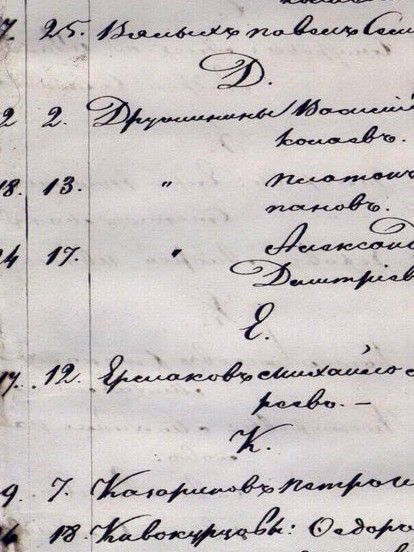 7. 25. Вялыхъ Павелъ Сем
Д.
2 2. Дружинины Василій
колаевъ.
18. 13. " Платонъ
пановъ.
24 17. " Александ
Дмитріев
Е.
17. 12. Ермаковъ Михайло
реевъ. —
К.
9. 7. Казариновъ Петръ
18. Кавокурцовы: Ѳедора